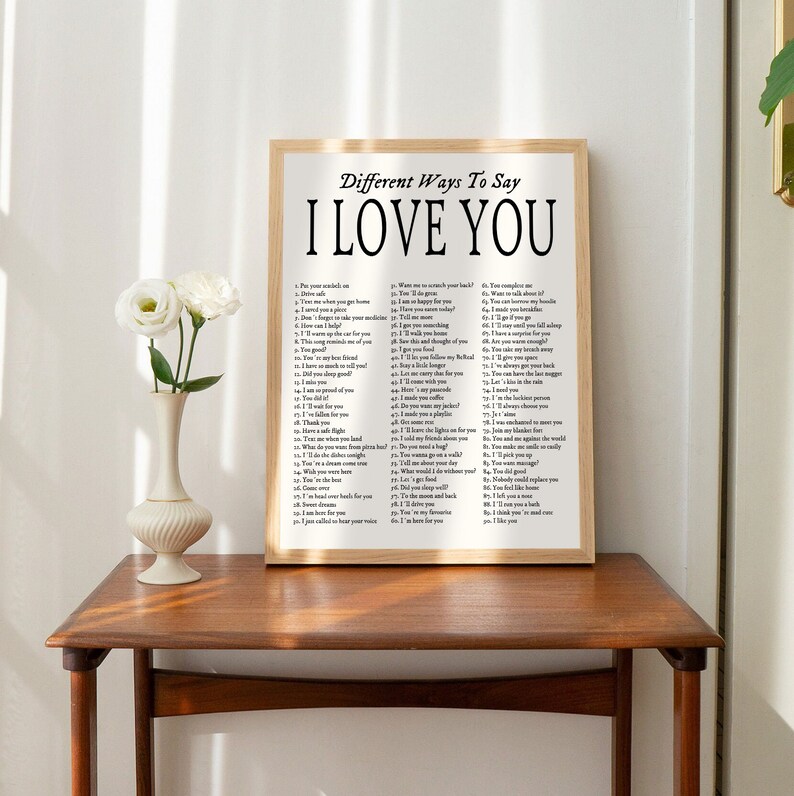 Different Ways To Say
I LOVE YOU
1. Put your seatbelt on
2. Drive safe
3. Text me when you get home
4. I saved you a piece
5. Don´t forget to take your medicine
6. How can I help?
7. I´ll warm up the car for you
8. This song reminds me of you
9. You good?
10. You´re my best friend
11. I have so much to tell you!
12. Did you sleep good?
13. I miss you
14. I am so proud of you
15. You did it!
16. I´ll wait for you
17. I´ve fallen for you
18. Thank you
19. Have a safe flight
20. Text me when you land
21. What do you want from pizza hut?
22. I´ll do the dishes tonight
23. You´re a dream come true
24. Wish you were here
25. You´re the best
26. Come over
27. I´m head over heels for you
28. Sweet dreams
29. I am here for you
30. I just called to hear your voice
31. Want me to scratch your back?
32. You´ll do great
33. I am so happy for you
34. Have you eaten today?
35. Tell me more
36. I got you something
37. I´ll walk you home
38. Saw this and thought of you
39. I got you food
40. I´ll let you follow my BeReal
41. Stay a little longer
42. Let me carry that for you
43. I´ll come with you
44. Here´s my passcode
45. I made you coffee
46. Do you want my jacket?
47. I made you a playlist
48. Get some rest
49. I´ll leave the lights on for you
50. I told my friends about you
51. Do you need a hug?
52. You wanna go on a walk?
53. Tell me about your day
54. What would I do without you?
55. Let´s get food
56. Did you sleep well?
57. To the moon and back
58. I´ll drive
59. You´re my favourite
60. I´m here for you
61. You complete me
62. Want to talk about it?
63. You can borrow my hoodie
64. I made you breakfast
65. I´ll go if you go
66. I´ll stay until you fall asleep
67. I have a surprise for you
68. Are you warm enough?
69. You take my breath away
70. I´ll give you space
71. I´ve always got your back
72. You can have the last nugget
73. Let´s kiss in the rain
74. I need you
75. I´m the luckiest person
76. I´ll always choose you
77. Je t´aime
78. I was enchanted to meet you
79. Join my blanket fort
80. You and me against the world
81. You make me smile so easily
82. I´ll pick you up
83. You want massage?
84. You did good
85. Nobody could replace you
86. You feel like home
87. I left you a note
88. I´ll run you a bath
89. I think you´re mad cute
90. I like you